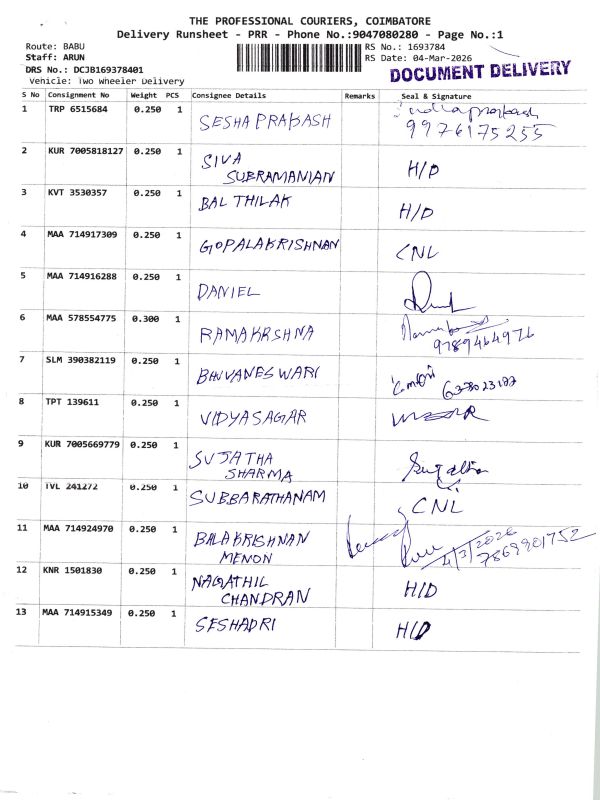 THE PROFESSIONAL COURIERS, COIMBATORE
Delivery Runsheet - PRR - Phone No.:9047080280 - Page No.:1
Route: BABU
RS No.: 1693784
Staff: ARUN
RS Date: 04-Mar-2026
DRS No.: DCJB169378401
Vehicle: Two Wheeler Delivery
DOCUMENT DELIVERY
S No Consignment No Weight PCS Consignee Details Remarks Seal & Signature
1 TRP 6515684 0.250 1 SESHA PRAKASH
9976175255
2 KUR 7005818127 0.250 1 SIVA
SUBRAMANIAN H/D
3 KVT 3530357 0.250 1 BAL THILAK H/D
4 MAA 714917309 0.250 1 GOPALAKRISHNAN CNL
5 MAA 714916288 0.250 1 DANIEL
6 MAA 578554775 0.300 1 RAMAKRSHNA
9789464976
7 SLM 390382119 0.250 1 BHUVANESWARI
8 TPT 139611 0.250 1 VIDYASAGAR
9 KUR 7005669779 0.250 1 SUJATHA
SHARMA
10 TVL 241272 0.250 1 SUBBARATHANAM CNL
11 MAA 714924970 0.250 1 BALAKRISHNAN
MENON 4/3/2026
7868901752
12 KNR 1501830 0.250 1 NAGATHIL
CHANDRAN H/D
13 MAA 714915349 0.250 1 SESHADRI H/D